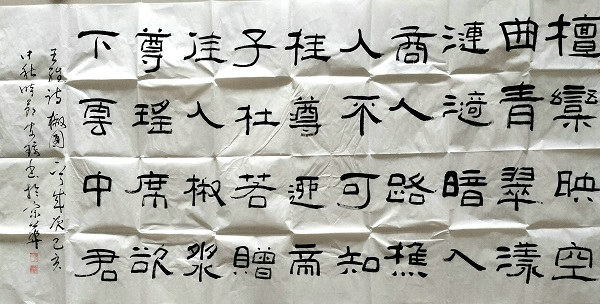 檀欒映空
曲青翠漾
漣漪暗入
商人路樵
人不可知
桂尊迎帝
子杜若贈
佳人椒漿
尊瑤席欲
下雲中君
王維詩椒園 歲 己亥
中秋時節 書於京華